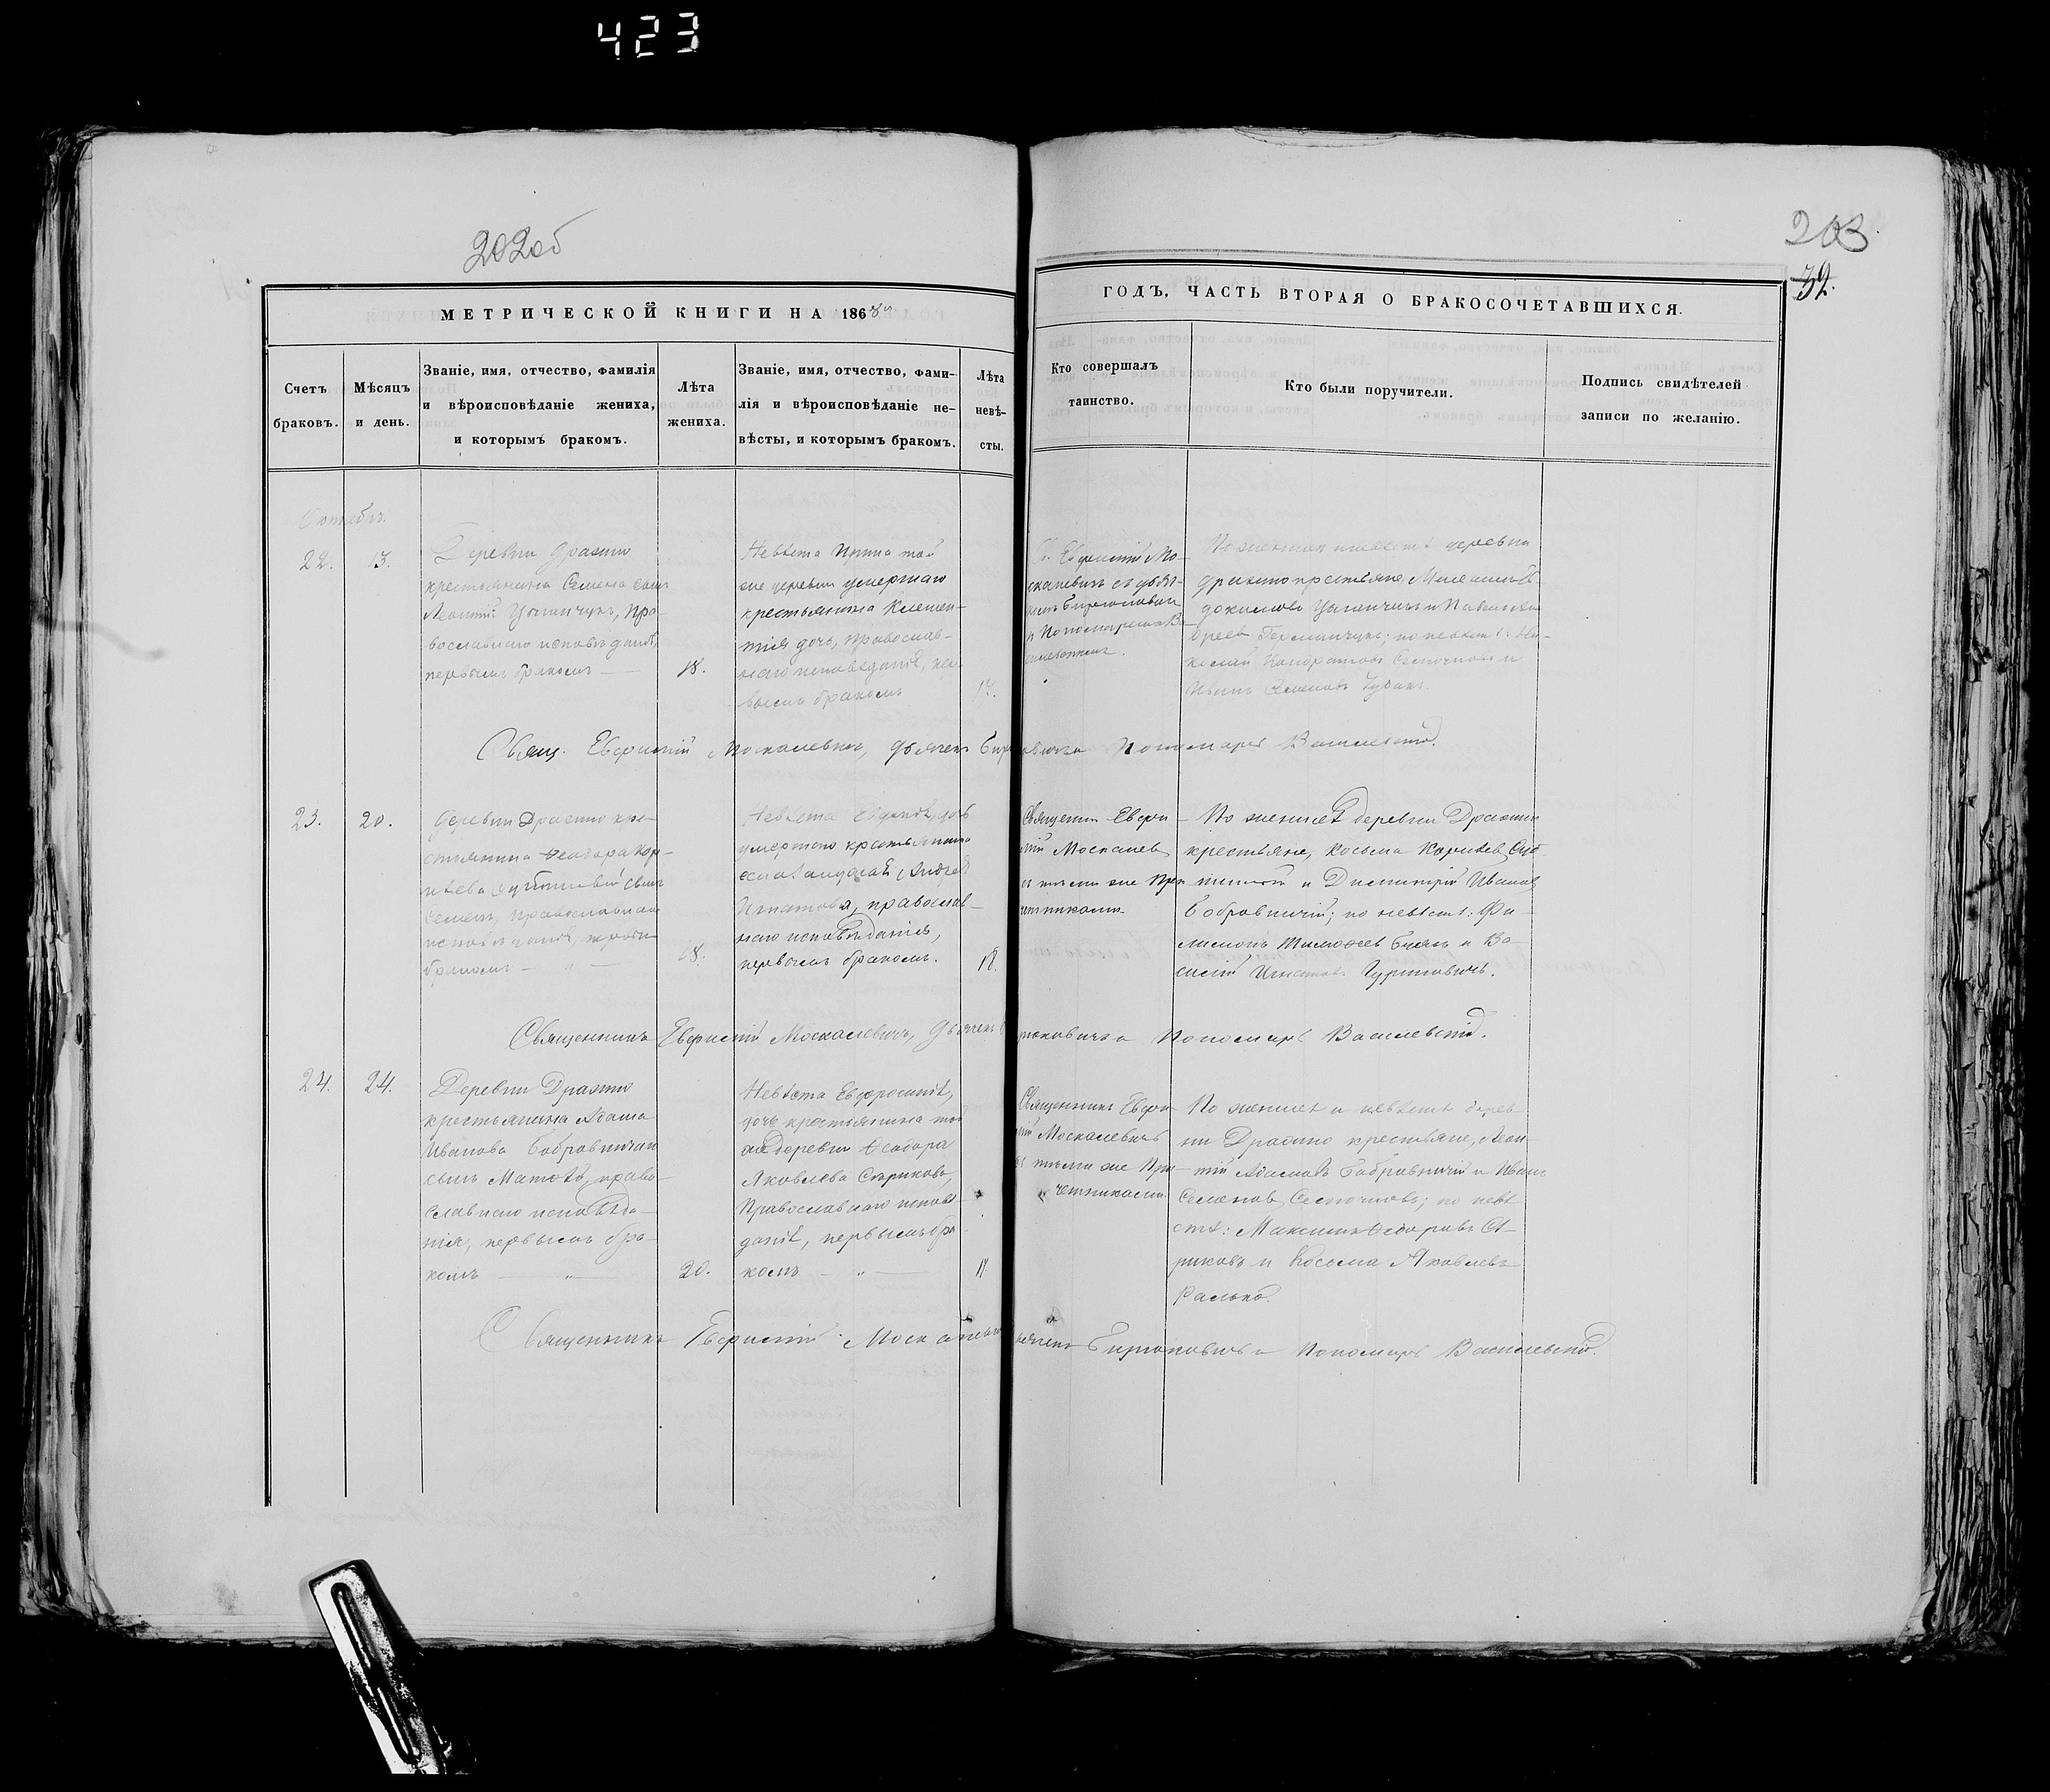 423
202об
203
32.
МЕТРИЧЕСКОЙ КНИГИ НА 1868й
ГОДЪ, ЧАСТЬ ВТОРАЯ О БРАКОСОЧЕТАВШИХСЯ.
Счетъ
браковъ.
Мѣсяцъ
и день.
Званіе, имя, отчество, фамилія
и вѣроисповѣданіе жениха,
и которымъ бракомъ.
Лѣта
жениха.
Званіе, имя, отчество, фами-
лія и вѣроисповѣданіе не-
вѣсты, и которымъ бракомъ.
Лѣта
невѣ-
сты.
Кто совершалъ
таинство.
Кто были поручители.
Подпись свидѣтелей
записи по желанію.
Октябрь.
22.
13.
Деревни Дражно
крестьянина Семена сынъ
Леонтій Цыганчукъ, Пра-
вославнаго исповѣданія,
первымъ бракомъ
18.
Невѣста Ирина той
же деревни умершаго
крестьянина Климен-
тія дочь, православ-
наго исповеданія, пер-
вымъ бракомъ
17.
С. Евфимій Мо-
скалевичъ съ дьяч-
комъ Бирюковичъ
и Пономаремъ Ва-
силевскимъ.
По женихѣ деревни
Дражно крестьяне
Цыганчукъ и Павелъ
по невѣстѣ: Ни-
колай Кондратовъ и
Иванъ Семеновъ
Свящ. Евфимій Москалевичъ, Дьячекъ Бирюковичъ и Пономарь Василевскій.
23.
20.
Деревни Дражно кре-
стьянина Ѳеодора Кор-
нѣева сынъ
Семенъ, православнаго
исповѣданія, первымъ
бракомъ — „ —
18.
Невѣста Евдокія, дочь
умершаго крестьянина
Андрея
Игнатова, православ-
наго исповѣданія,
первымъ бракомъ.
18.
Священникъ Евфи-
мій Москалев
съ тѣми же При-
четниками
По женихѣ деревни Дражно
крестьяне, Косьма Корнѣев
и Димитрій Иванов
Бобровничій; по невѣстѣ: Фи-
лимонъ Тимоѳеев и Ва-
силій Игнатовъ Гуриновичъ.
Священникъ Евфимій Москалевичъ, Дьячекъ Бирюковичъ и Пономарь Василевскій.
24.
24.
Деревни Дражно
крестьянина Адама
Иванова Бобровничаго
сынъ Матѳей, право-
славнаго исповѣда-
нія, первымъ бра-
комъ — „ —
20.
Невѣста Евфросинія,
дочь крестьянина той
же деревни Ѳеодора
Яковлева Стрикова,
Православнаго исповѣ-
данія, первымъ бра-
комъ — „ —
17.
Священникъ Евфи-
мій Москалевичъ
съ тѣми же При-
четниками.
По женихѣ и невѣстѣ дерев-
ни Дражно крестьяне, Леон-
тій Адамовъ Бобровничій и Иванъ
Семенов; по невѣ-
стѣ: Максимъ Ѳедоровъ Ст-
риковъ и Косьма Яковлевъ
Ралько.
Священникъ Евфимій Москалевичъ Дьячекъ Бирюковичъ и Пономарь Василевскій.